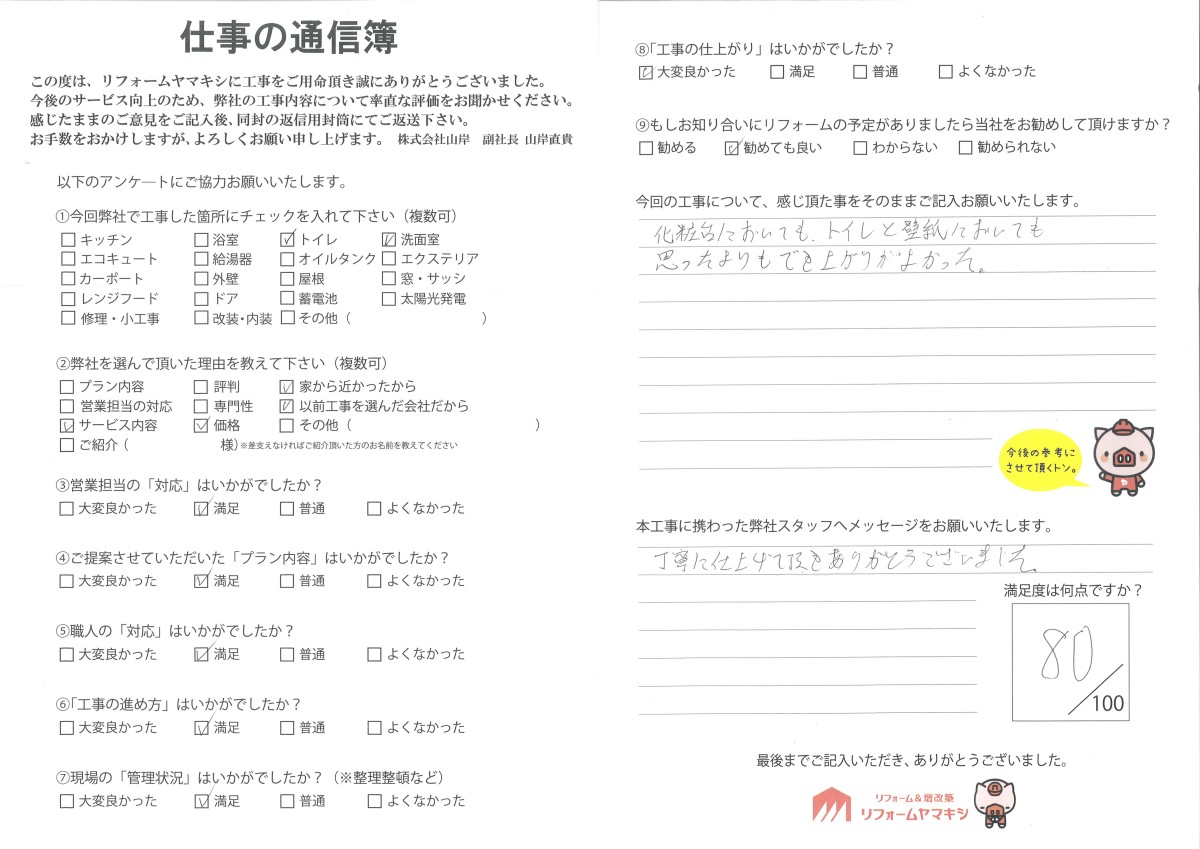 仕事の通信簿
この度は、リフォームヤマキシに工事をご用命頂き誠にありがとうございました。
今後のサービス向上のため、弊社の工事内容について率直な評価をお聞かせください。
感じたままのご意見をご記入後、同封の返信用封筒にてご返送下さい。
お手数をおかけしますが、よろしくお願い申し上げます。 株式会社山岸 副社長 山岸直貴
以下のアンケートにご協力お願いいたします。
①今回弊社で工事した箇所にチェックを入れて下さい（複数可）
□キッチン □浴室 ☑トイレ ☑洗面室
□エコキュート □給湯器 □オイルタンク □エクステリア
□カーポート □外壁 □屋根 □窓・サッシ
□レンジフード □ドア □蓄電池 □太陽光発電
□修理・小工事 □改装・内装 □その他（ ）
②弊社を選んで頂いた理由を教えて下さい（複数可）
□プラン内容 □評判 ☑家から近かったから
□営業担当の対応 □専門性 ☑以前工事を選んだ会社だから
☑サービス内容 ☑価格 □その他（ ）
□ご紹介（ 様）※差支えなければご紹介頂いた方のお名前を教えてください
③営業担当の「対応」はいかがでしたか？
□大変良かった ☑満足 □普通 □よくなかった
④ご提案させていただいた「プラン内容」はいかがでしたか？
□大変良かった ☑満足 □普通 □よくなかった
⑤職人の「対応」はいかがでしたか？
□大変良かった ☑満足 □普通 □よくなかった
⑥「工事の進め方」はいかがでしたか？
□大変良かった ☑満足 □普通 □よくなかった
⑦現場の「管理状況」はいかがでしたか？（※整理整頓など）
□大変良かった ☑満足 □普通 □よくなかった
⑧「工事の仕上がり」はいかがでしたか？
☑大変良かった □満足 □普通 □よくなかった
⑨もしお知り合いにリフォームの予定がありましたら当社をお勧めして頂けますか？
□勧める ☑勧めても良い □わからない □勧められない
今回の工事について、感じ頂た事をそのままご記入お願いいたします。
化粧台においても、トイレと壁紙においても
思ったよりもでき上がりがよかった。
今後の参考に
させて頂くトン。
本工事に携わった弊社スタッフへメッセージをお願いいたします。
丁寧に仕上げて頂きありがとうございました。
満足度は何点ですか？
80
/100
最後までご記入いただき、ありがとうございました。
リフォーム＆増改築
リフォームヤマキシ